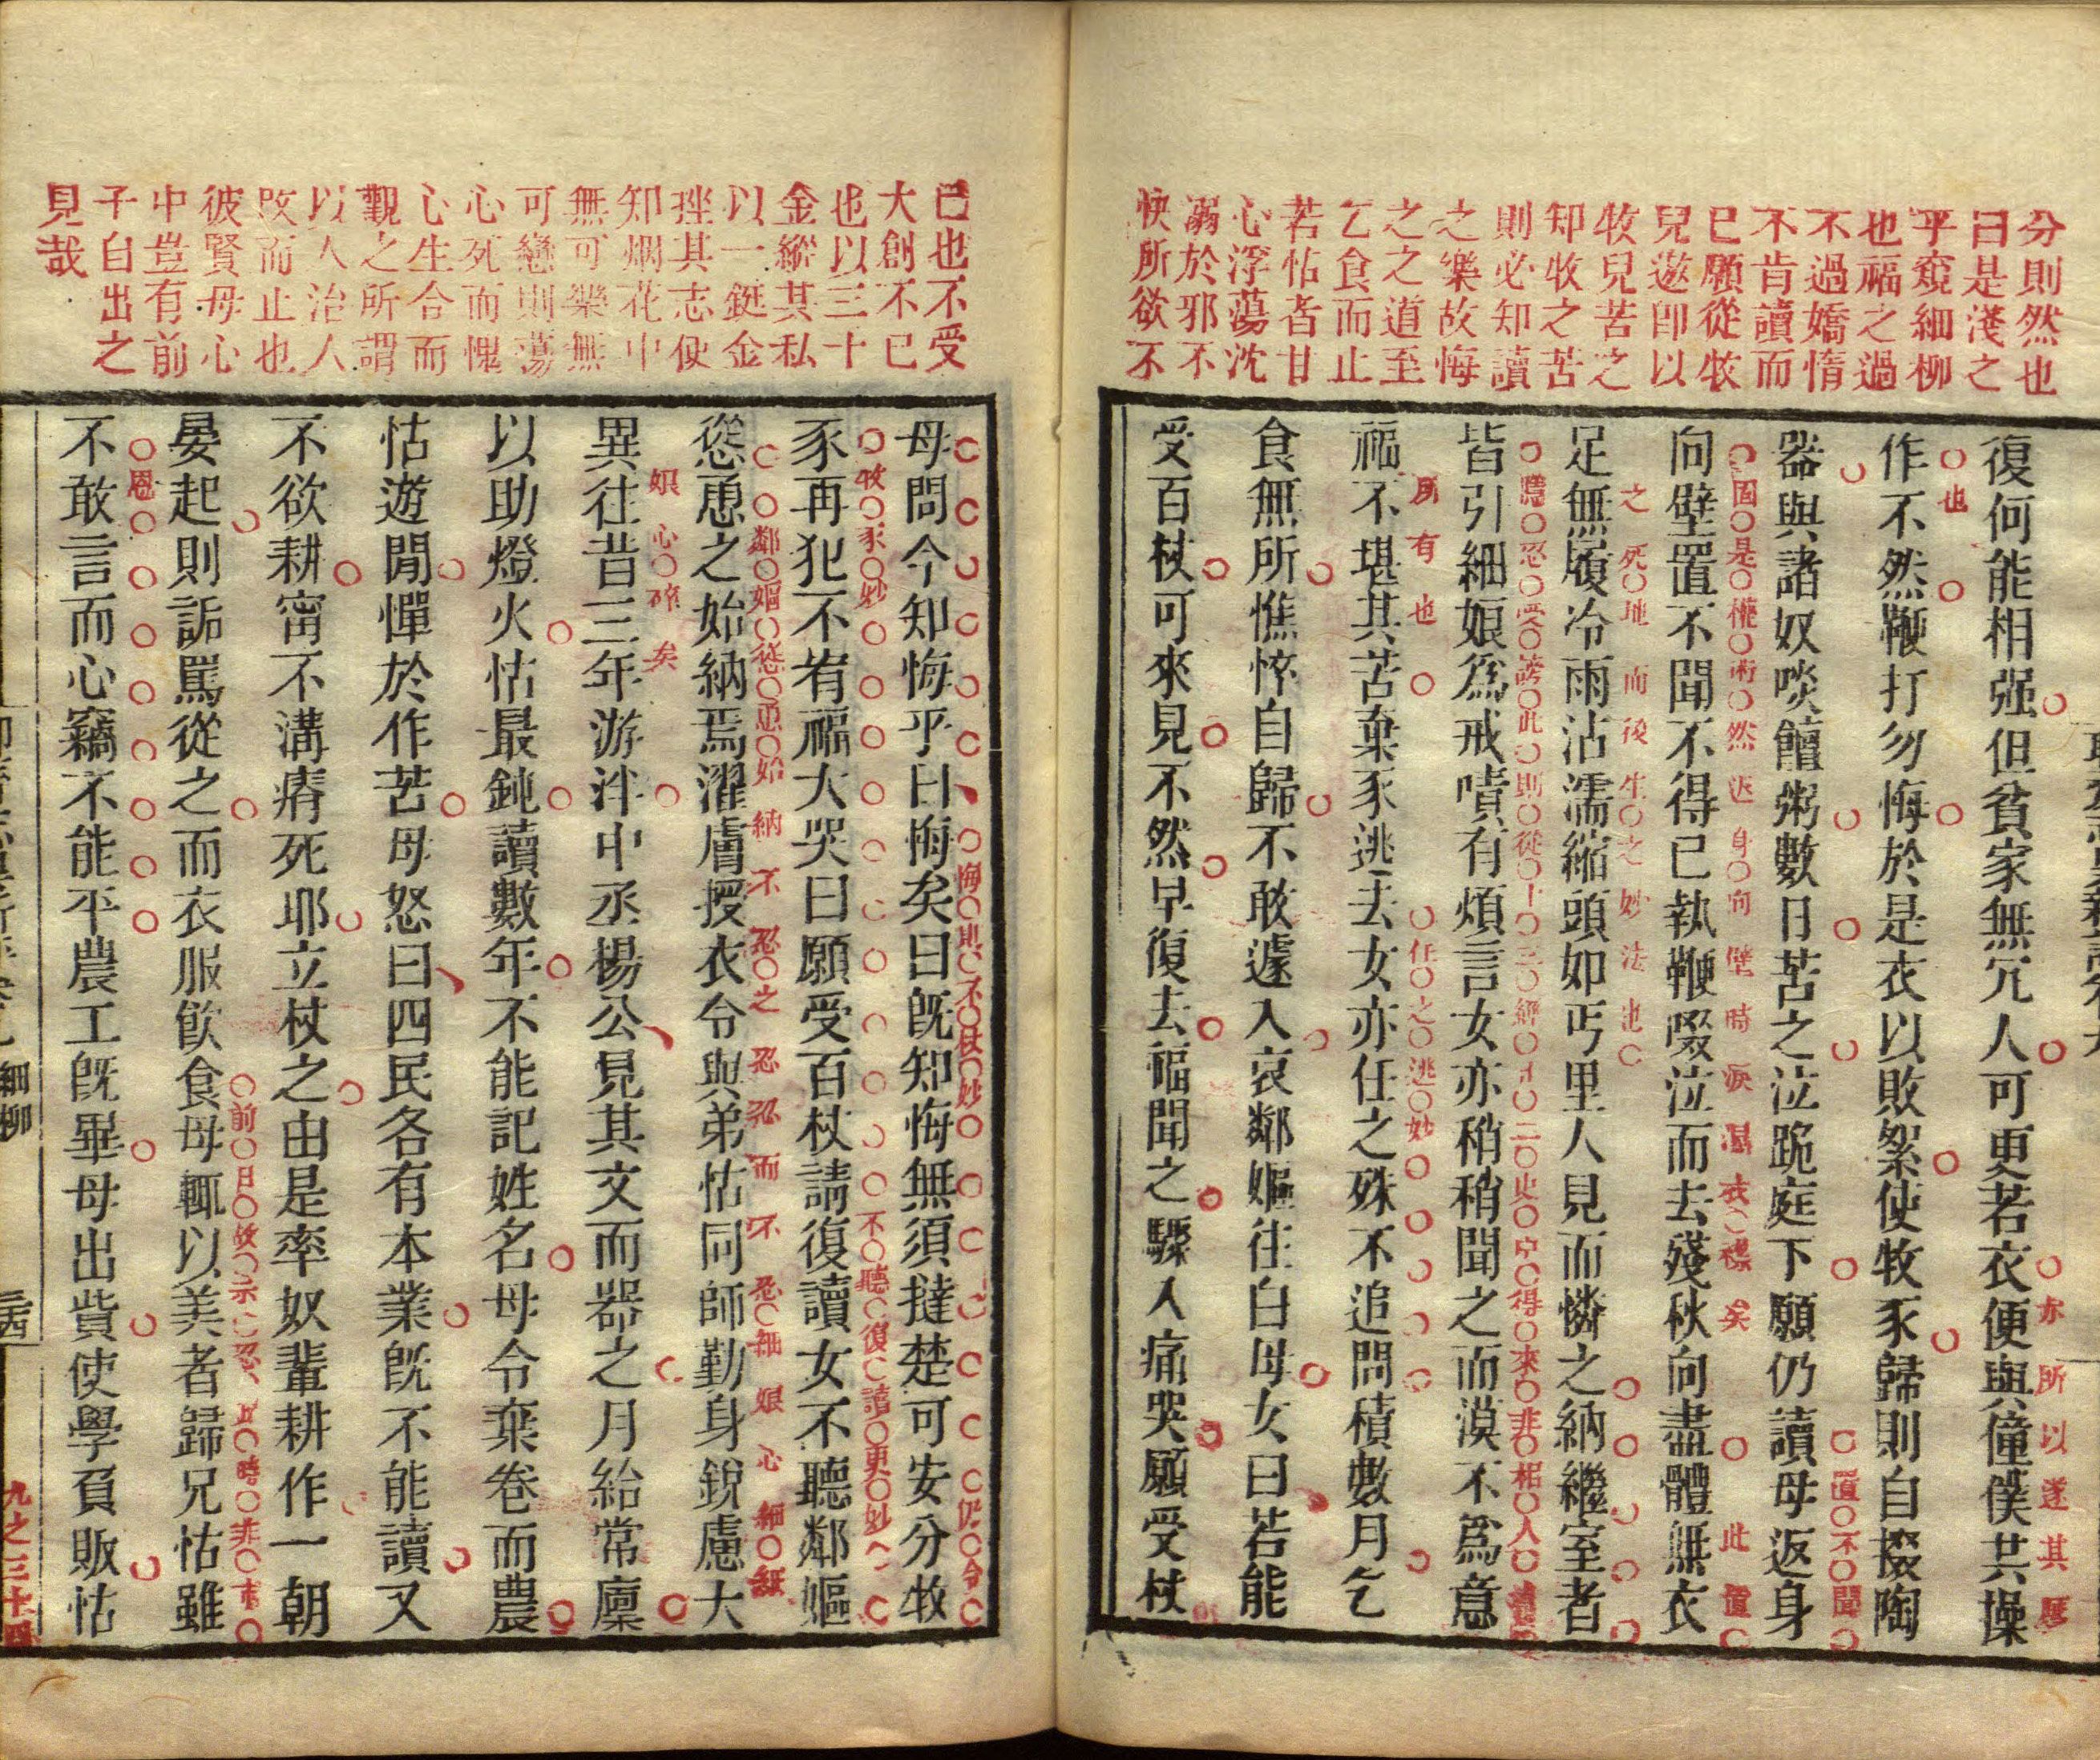 分則然也
曰是淺之
乎窺細柳
也福之過
不過嬌惰
不肯讀而
已願從牧
兒遊即以
牧兒苦之
知牧之苦
則必知讀
之樂故悔
之之道至
乞食而止
若怙者甘
心浮蕩沈
溺於邪不
快所欲不
復何能相强但貧家無冗人可更若衣便與僮僕共操
亦所以遂其愿也
作不然鞭打勿悔於是衣以敗絮使牧豕歸則自掇陶
器與諸奴啖饘粥數日苦之泣跪庭下願仍讀母返身
置不聞固是權術然返身向壁時淚濕衣襟矣
向壁置不聞不得已執鞭啜泣而去殘秋向盡體無衣
此置之死地而後生之妙法也
足無履冷雨沾濡縮頭如丐里人見而憐之納繼室者
皆引細娘爲戒嘖有煩言女亦稍稍聞之而漠不爲意
所有也
福不堪其苦棄豕逃去女亦任之殊不追問積數月乞
任之逃妙
食無所憔悴自歸不敢遽入哀鄰媼往白母女曰若能
受百杖可來見不然早復去福聞之驟入痛哭願受杖
已也不受
大創不已
也以三十
金縱其私
以一鋌金
挫其志使
知烟花中
無可樂無
可戀則蕩
心死而愧
心生合而
觀之所謂
以人治人
改而止也
彼賢母心
中豈有前
子自出之
見哉
母問今知悔乎曰悔矣曰既知悔無須撻楚可安分牧
悔則不杖妙仍令牧豕妙
豕再犯不宥福大哭曰願受百杖請復讀女不聽鄰媼
不聽復讀更妙
慫恿之始納焉濯膚授衣令與弟怙同師勤身銳慮大
鄰媼慫恿始納不忍之忍忍而不忍細娘心細細娘心碎矣
異往昔三年游泮中丞楊公見其文而器之月給常廩
以助燈火怙最鈍讀數年不能記姓名母令棄卷而農
怙遊閒憚於作苦母怒曰四民各有本業既不能讀又
不欲耕甯不溝瘠死耶立杖之由是率奴輩耕作一朝
晏起則詬罵從之而衣服飮食母輒以美者歸兄怙雖
不敢言而心竊不能平農工既畢母出貲使學負販怙
細柳
九之三十四